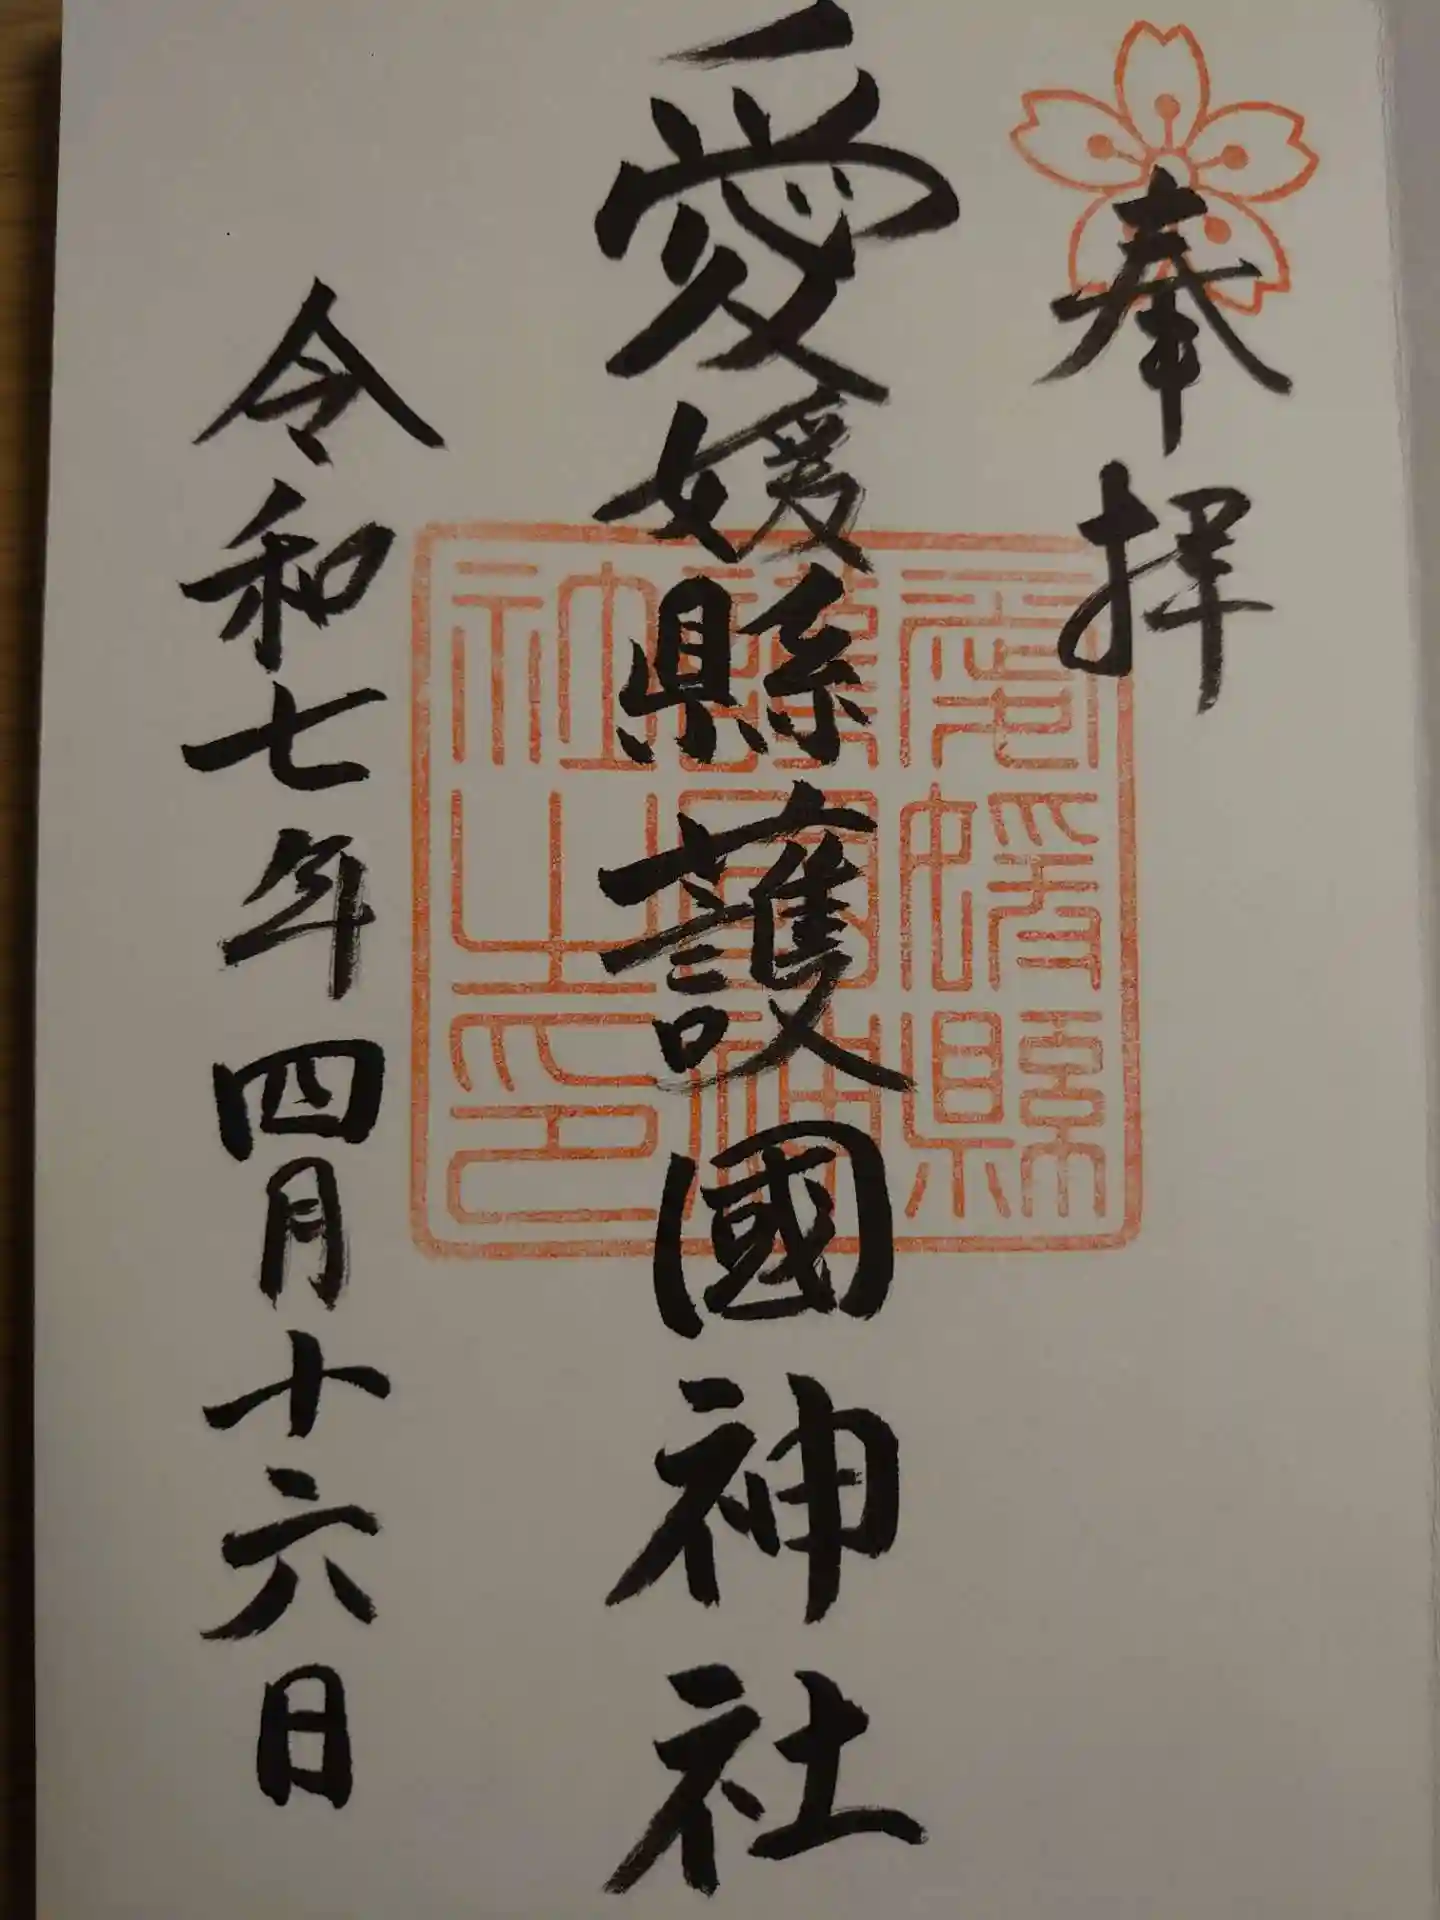 奉拝
愛媛縣護國神社
愛媛縣
護國神
社之印
令和七年四月十六日